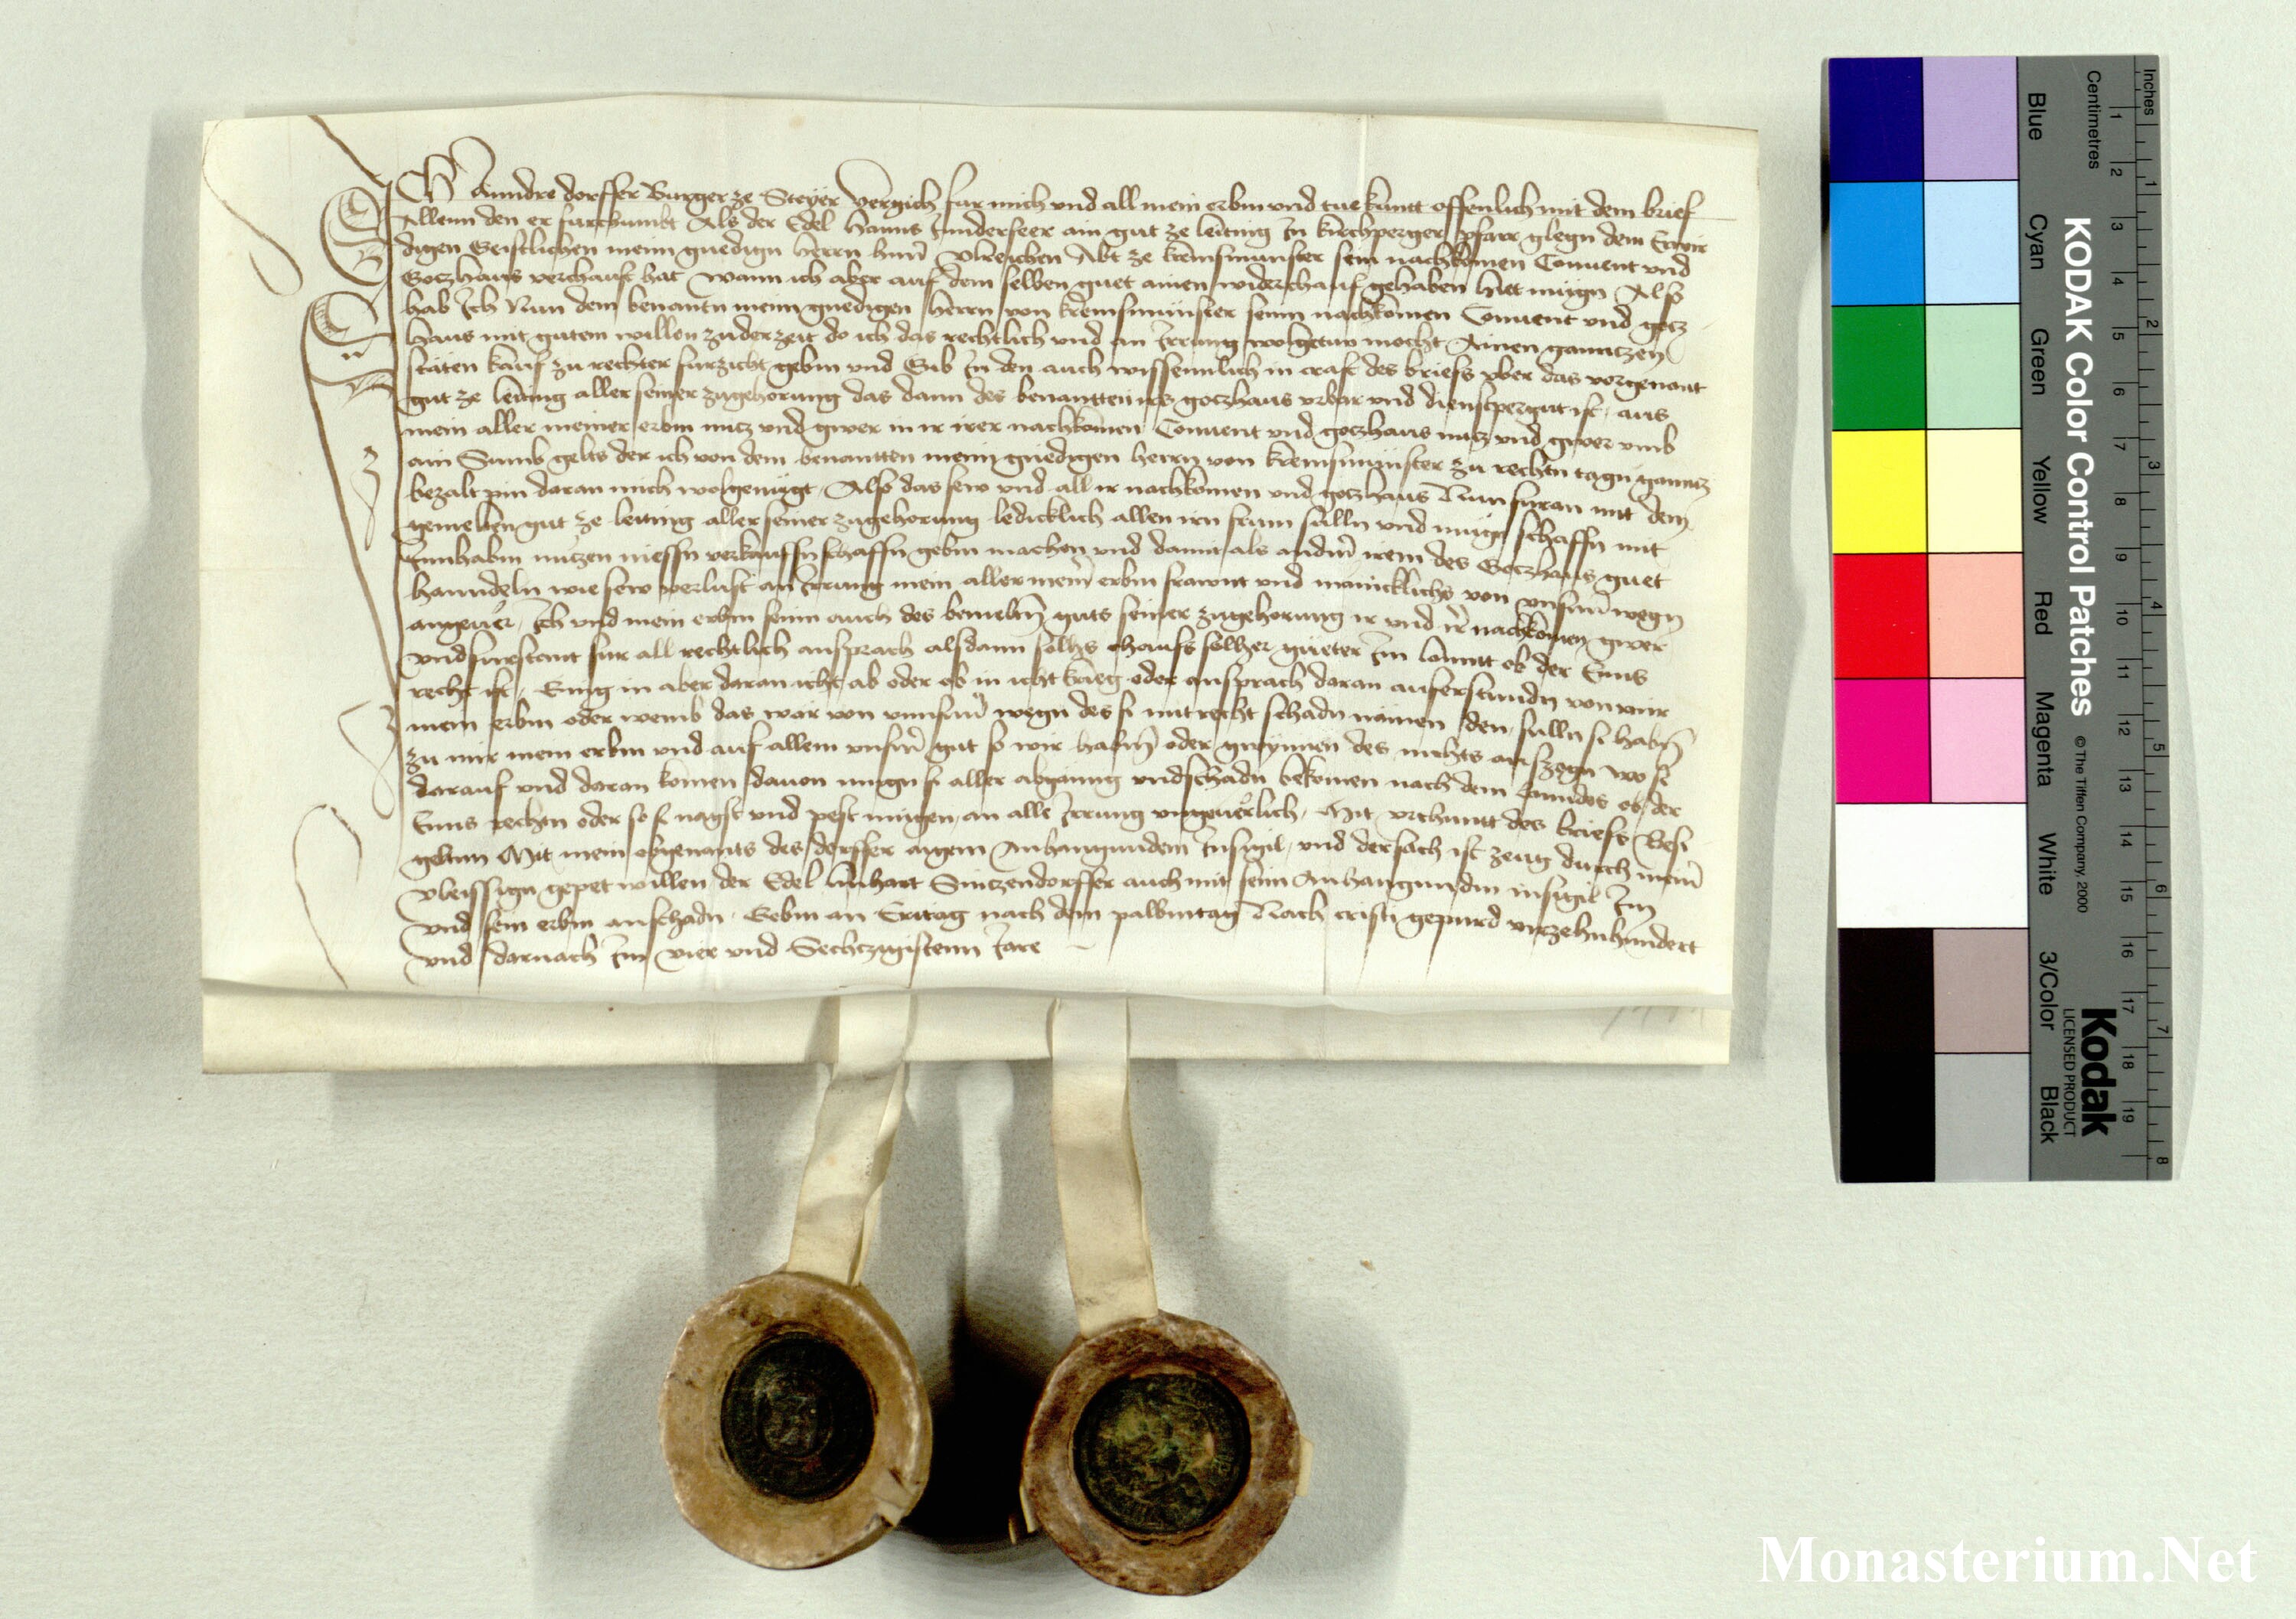 Ich Anndre dorffer Burger ze Steyer vergich fur mich vnd all mein erbm vnd tue kuntt offenlich mit dem brief
Allenn den er furchumbt Als der Edel Hanns Innderseer ain gut ze leiting In kirchperger pfarr glegn dem Erwir
digen Geistlichen meinn gnedign herrn hern Vlreichen Abt ze kremsmunster sein nachkomen Conuent vnd
Gotzhaus verchauft hat wann ich aber auf dem selben guet ainen widerchauf gehaben hiet mügn Also
hab Ich Nun dem benantn meinn gnedigen herrn von kremsmünster seinn nachkomen Conuent vnd gotz
haus mit gutem willen zu der zeit do ich das rechtlich vnd an Irrung wolgetun mocht Ainen ganntzen
stäten kauf zu rechter furzicht gebm vnd Gib In den auch wissenntlich in craft des briefs vber das vorgenant
gut ze leiting aller seiner zugehorung das dann des benantten irs gotzhaus vrbar vnd dienstpergut ist, aus
mein aller meiner erbm nutz vnd gwer in ir irer nachkomen Conuent vnd gotzhaus nutz vnd gwer vmb
ain Sumb gelts der ich von dem benantten meinn gnedigen herrn von kremsmünster zu rechtn tagn ganntz
bezalt pin daran mich wolgenügt, Also das sew vnd all ir nachkomen vnd gotzhaus Nun furan mit dem
gemelten gut ze leiting aller seiner zugehorung ledicklich allen irn frum sulln vnd mügn schaffn mit
Innhabm nutzen niessn verkauffn schaffn gebm machen vnd damit als anderm irem des Gotzhaus guet
hanndeln wie sew verlust an Irrung mein aller meiner erbm frawnt vnd männcklichs von vnsern wegn
angeuer, Ich vnd mein erbm seinn auch des bemeltn guts seiner zugehorung ir vnd ir nachkomen gwer
vnd furstant fur all rechtlich ansprach alsdann solhs chaufs solher güeter Im lanntt ob der Enns
recht ist, Gieng in aber daran icht ab oder ob in icht krieg oder ansprach daran auferstundn von mir
mein erbm oder wemb das wär von vnnsern wegn des si mit recht schadn nämen den sulln si habm
zu mir mein erbm vnd auf allem vnserm gut so wir habm oder gwynnen des nichts auszegn wo si
darauf vnd daran komen dauon mügn si aller abganng vnd schadn bekomen nach dem lanndes ob der
Enns rechtn oder so si nagst vnd pest mügen, an alle Irrung vngeuerlich, Mit vrchuntt des briefs Besi
geltnn Mit mein obgenants des dorffer aigem Anhangundem Insigil, vnd der sach ist zeug durch meinr
vleissign gepet willen der Edel linhart Sintzendorffer auch mit seinn Anhangundm insigil Im
vnd sein erbm an schadn, Gebm an Eritag nach dem palbmtag Nach cristi gepurd virtzehnhundert
vnd darnach Im vier vnd Sechtzigistenn Iare
Inches
Centimetres
KODAK Color Control Patches
© The Tiffen Company, 2000
Kodak
LICENSED PRODUCT
Blue
Cyan
Green
Yellow
Red
Magenta
White
3/Color
Black
1 2 3 4 5 6 7 8 9 10 11 12 13 14 15 16 17 18 19
1 2 3 4 5 6 7 8
Monasterium.Net